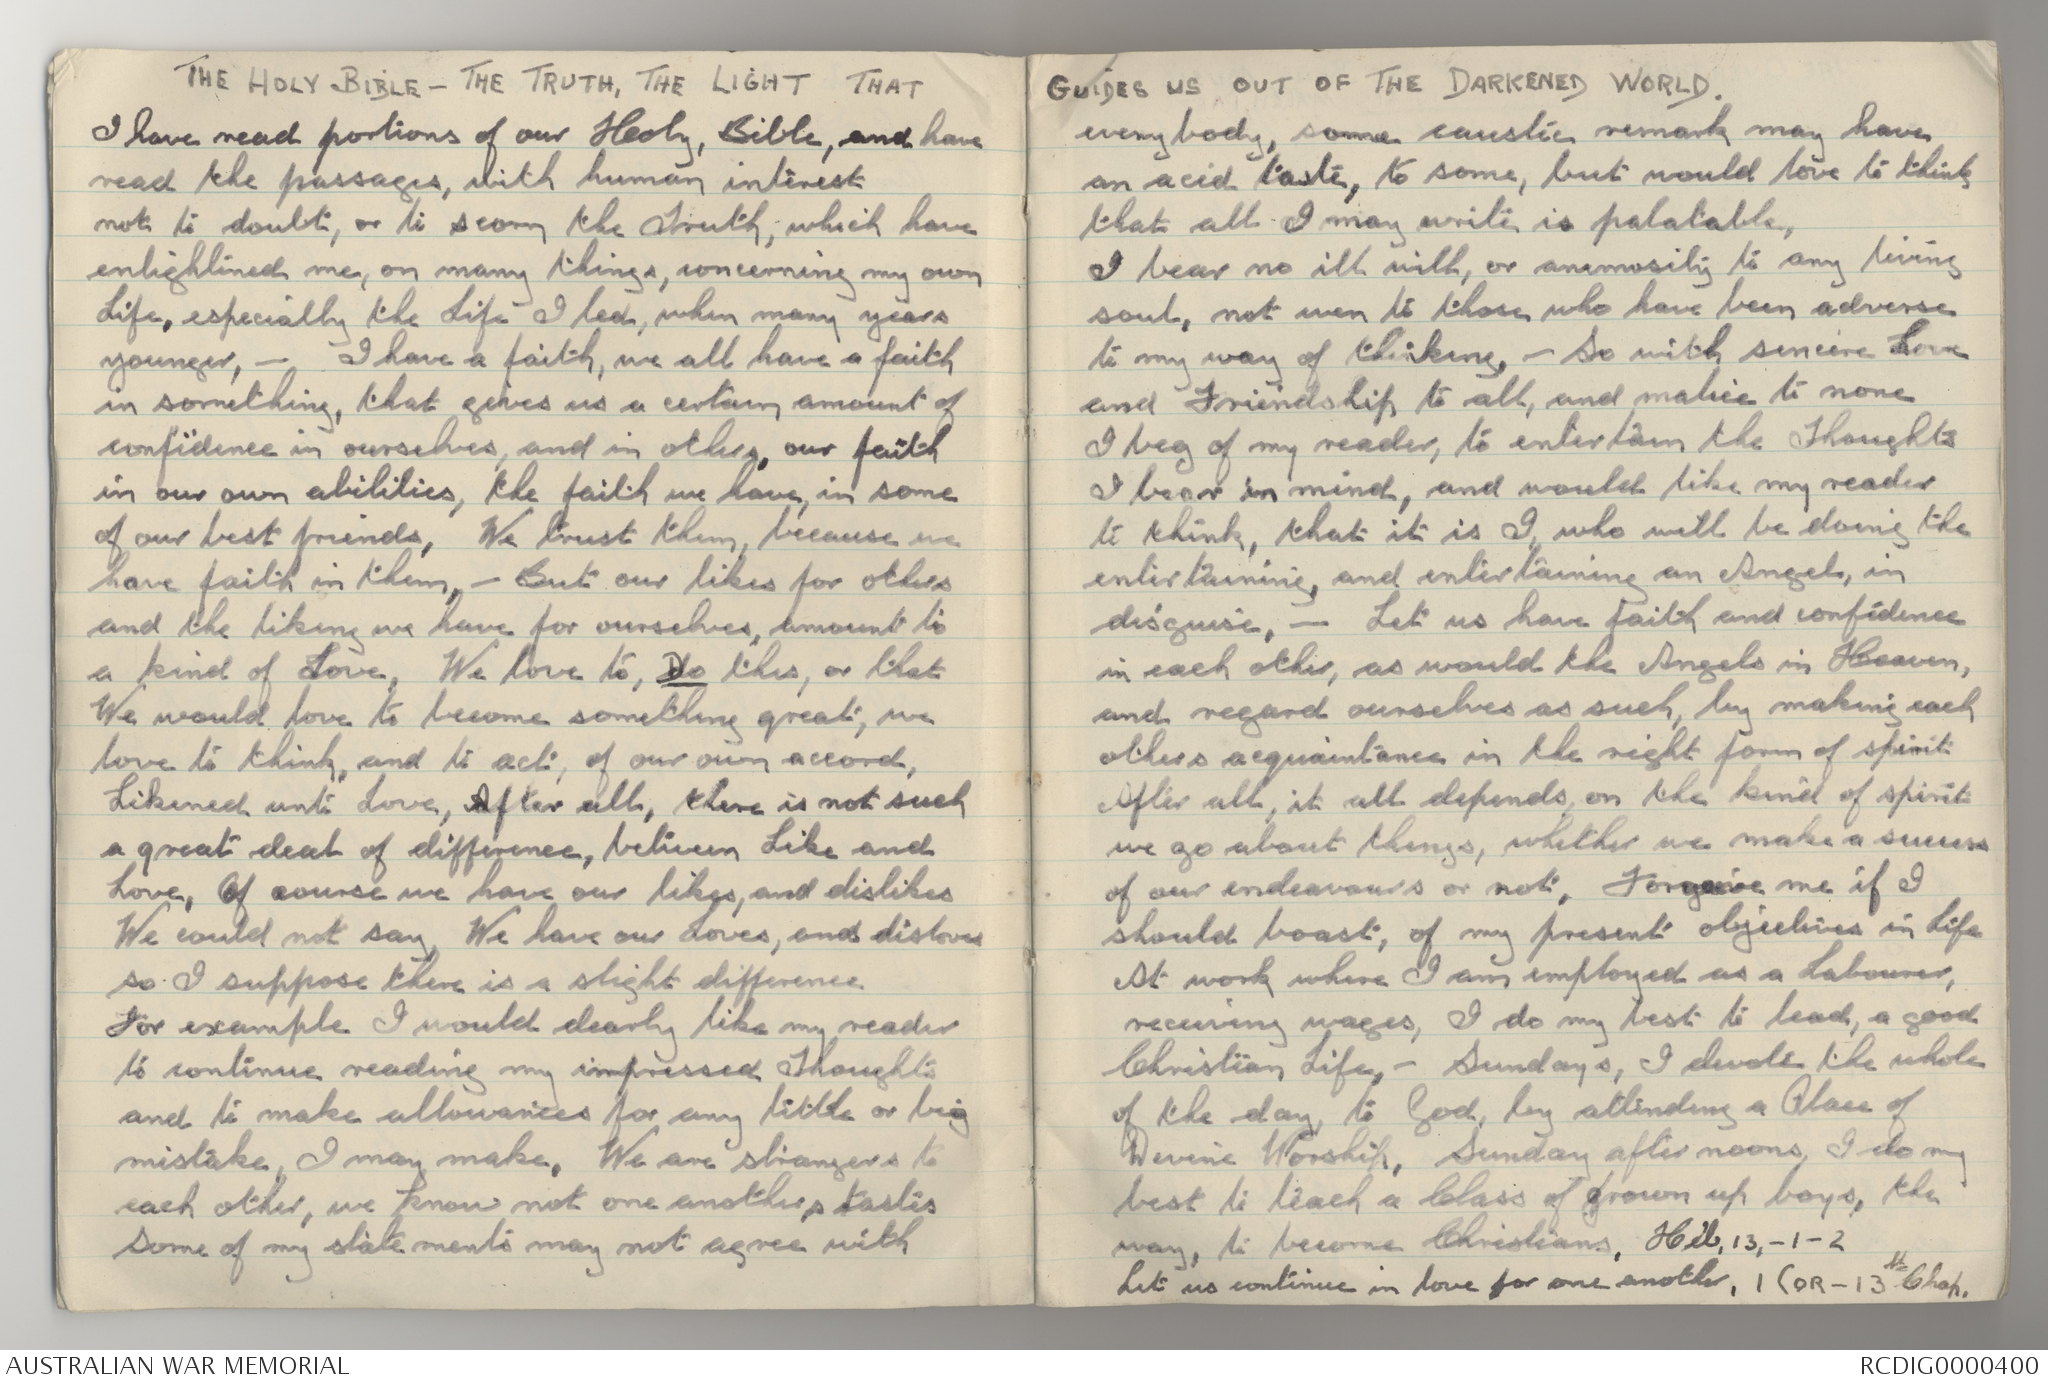 THE HOLY BIBLE – THE TRUTH, THE LIGHT THAT
I have read portions of our Holy, Bible, and have
read the passages, with human interest
not to doubt, or to scorn the Truth, which have
enlightined me, on many things, concerning my own
Life, especially the Life I led, when many years
younger, – I have a faith, we all have a faith
in something, that gives us a certain amount of
confidence in ourselves, and in others, our faith
in our own abilities, the faith we have, in some
of our best friends, We trust them, because we
have faith in them, – But our likes for others
and the liking we have for ourselves, amount to
a kind of Love, We love to, Do this, or that
We would love to become something great, we
love to think, and to act, of our own accord,
Likened unto Love, After all, there is not such
a great deal of difference, between Like and
Love, Of course we have our likes, and dislikes
We could not say, We have our Loves, and disloves
so I suppose there is a slight difference
For example I would dearly like my reader
to continue reading my impressed Thoughts
and to make allowances for any little or big
mistake, I may make, We are strangers to
each other, we know not one anothers tastes
Some of my statements may not agree with
GUIDES US OUT OF THE DARKENED WORLD.
everybody, some caustic remark may have
an acid taste, to some, but would love to think
that all I may write is palatable,
I bear no ill will, or anemosity to any living
soul, not even to those who have been adverse
to my way of thinking, – So with sincere Love
and Friendship to all, and malice to none
I beg of my reader, to entertain the Thoughts
I bear in mind, and would like my reader
to think, that it is I, who will be doing the
entertaining, and entertaining an Angel, in
disguise, – Let us have faith and confidence
in each other, as would the Angels in Heaven,
and regard ourselves as such, by making each
others acquaintance in the right form of spirit
After all, it all depends, on the kind of spirit
we go about things, whether we make a success
of our endeavours or not, Forgive me if I
should boast, of my present objectives in Life
At work where I am employed as a Labourer,
receiving wages, I do my best to lead, a good
Christian Life, – Sundays, I devote the whole
of the day, to God, by attending a Place of
Devine Worship, Sunday after noons, I do my
best to teach a Class of grown up boys, the
way, to become Christians, Heb, 13, – 1 – 2
Let us continue in love for one another, 1 COR – 13th Chap.
AUSTRALIAN WAR MEMORIAL
RCDIG0000400